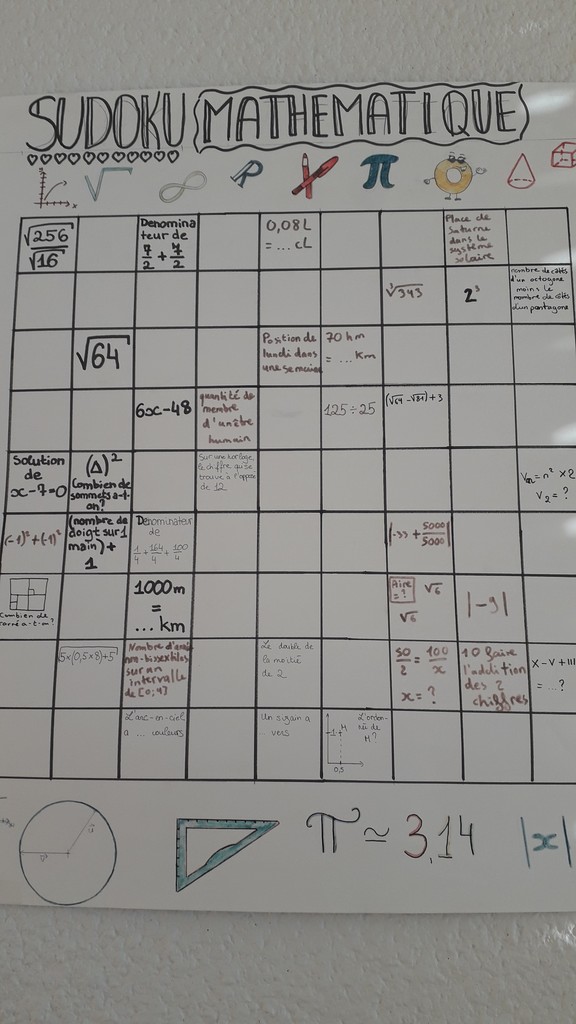 SUDOKU MATHEMATIQUE
π
√256
√16
Denomina
teur de
7/2 + 7/2
0,08L
= ... cL
Place de
Saturne
dans le
système
solaire
³√343
2³
nombre de côtés
d'un octogone
moins le
nombre de côtés
d'un pentagone
√64
Position de
lundi dans
une semaine
70 hm
= ... Km
6x-48
quantité de
membre
d'un être
humain
125÷25
(√64 -√81)+3
Solution
de
x-7=0
(Δ)²
Combien de
sommets a-t-
on?
Sur une horloge
le chiffre qui se
trouve à l'opposé
de 12
Vn = n² × 2
V₂ = ?
(-1)²+(-1)²
(nombre de
doigt sur 1
main) +
1
Dénominateur
de
1/4 + 164/4 + 100/4
5000/5000
Combien de
carré a-t-on?
1000m
=
... km
Aire
= ?
√6
√6
|-9|
√5×(0,5×8)+5
Nombre d'années
non-bissextiles
sur un
intervalle
de [0;4]
Le double de
la moitié
de 2
50/2 = 100/x
x = ?
10 faire
l'addition
des 2
chiffres
X-V+III
= ...?
L'arc-en-ciel
a ... couleurs
Un sizain a
... vers
L'ordon-
née de
M?
1
M
0,5
π ≃ 3,14
|x|